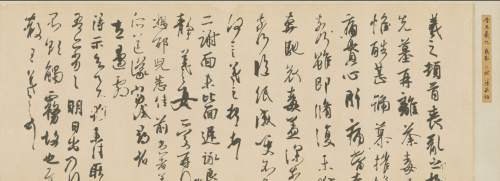 羲之頓首喪亂之極
先墓再離荼毒追
惟酷甚號慕摧
痛貫心肝痛當
奈何雖即脩復未
奔馳哀毒益深
奈何臨紙感哽不
何言羲之頓首
二謝面未比面遲詠良
靜羲女愛再
想邰兒悉佳前患者
所送議當試尋省
左邊劇
得示知足下猶未佳耿
吾亦劣劣明日出乃行
不欲觸霧故也遲
散王羲之頓首